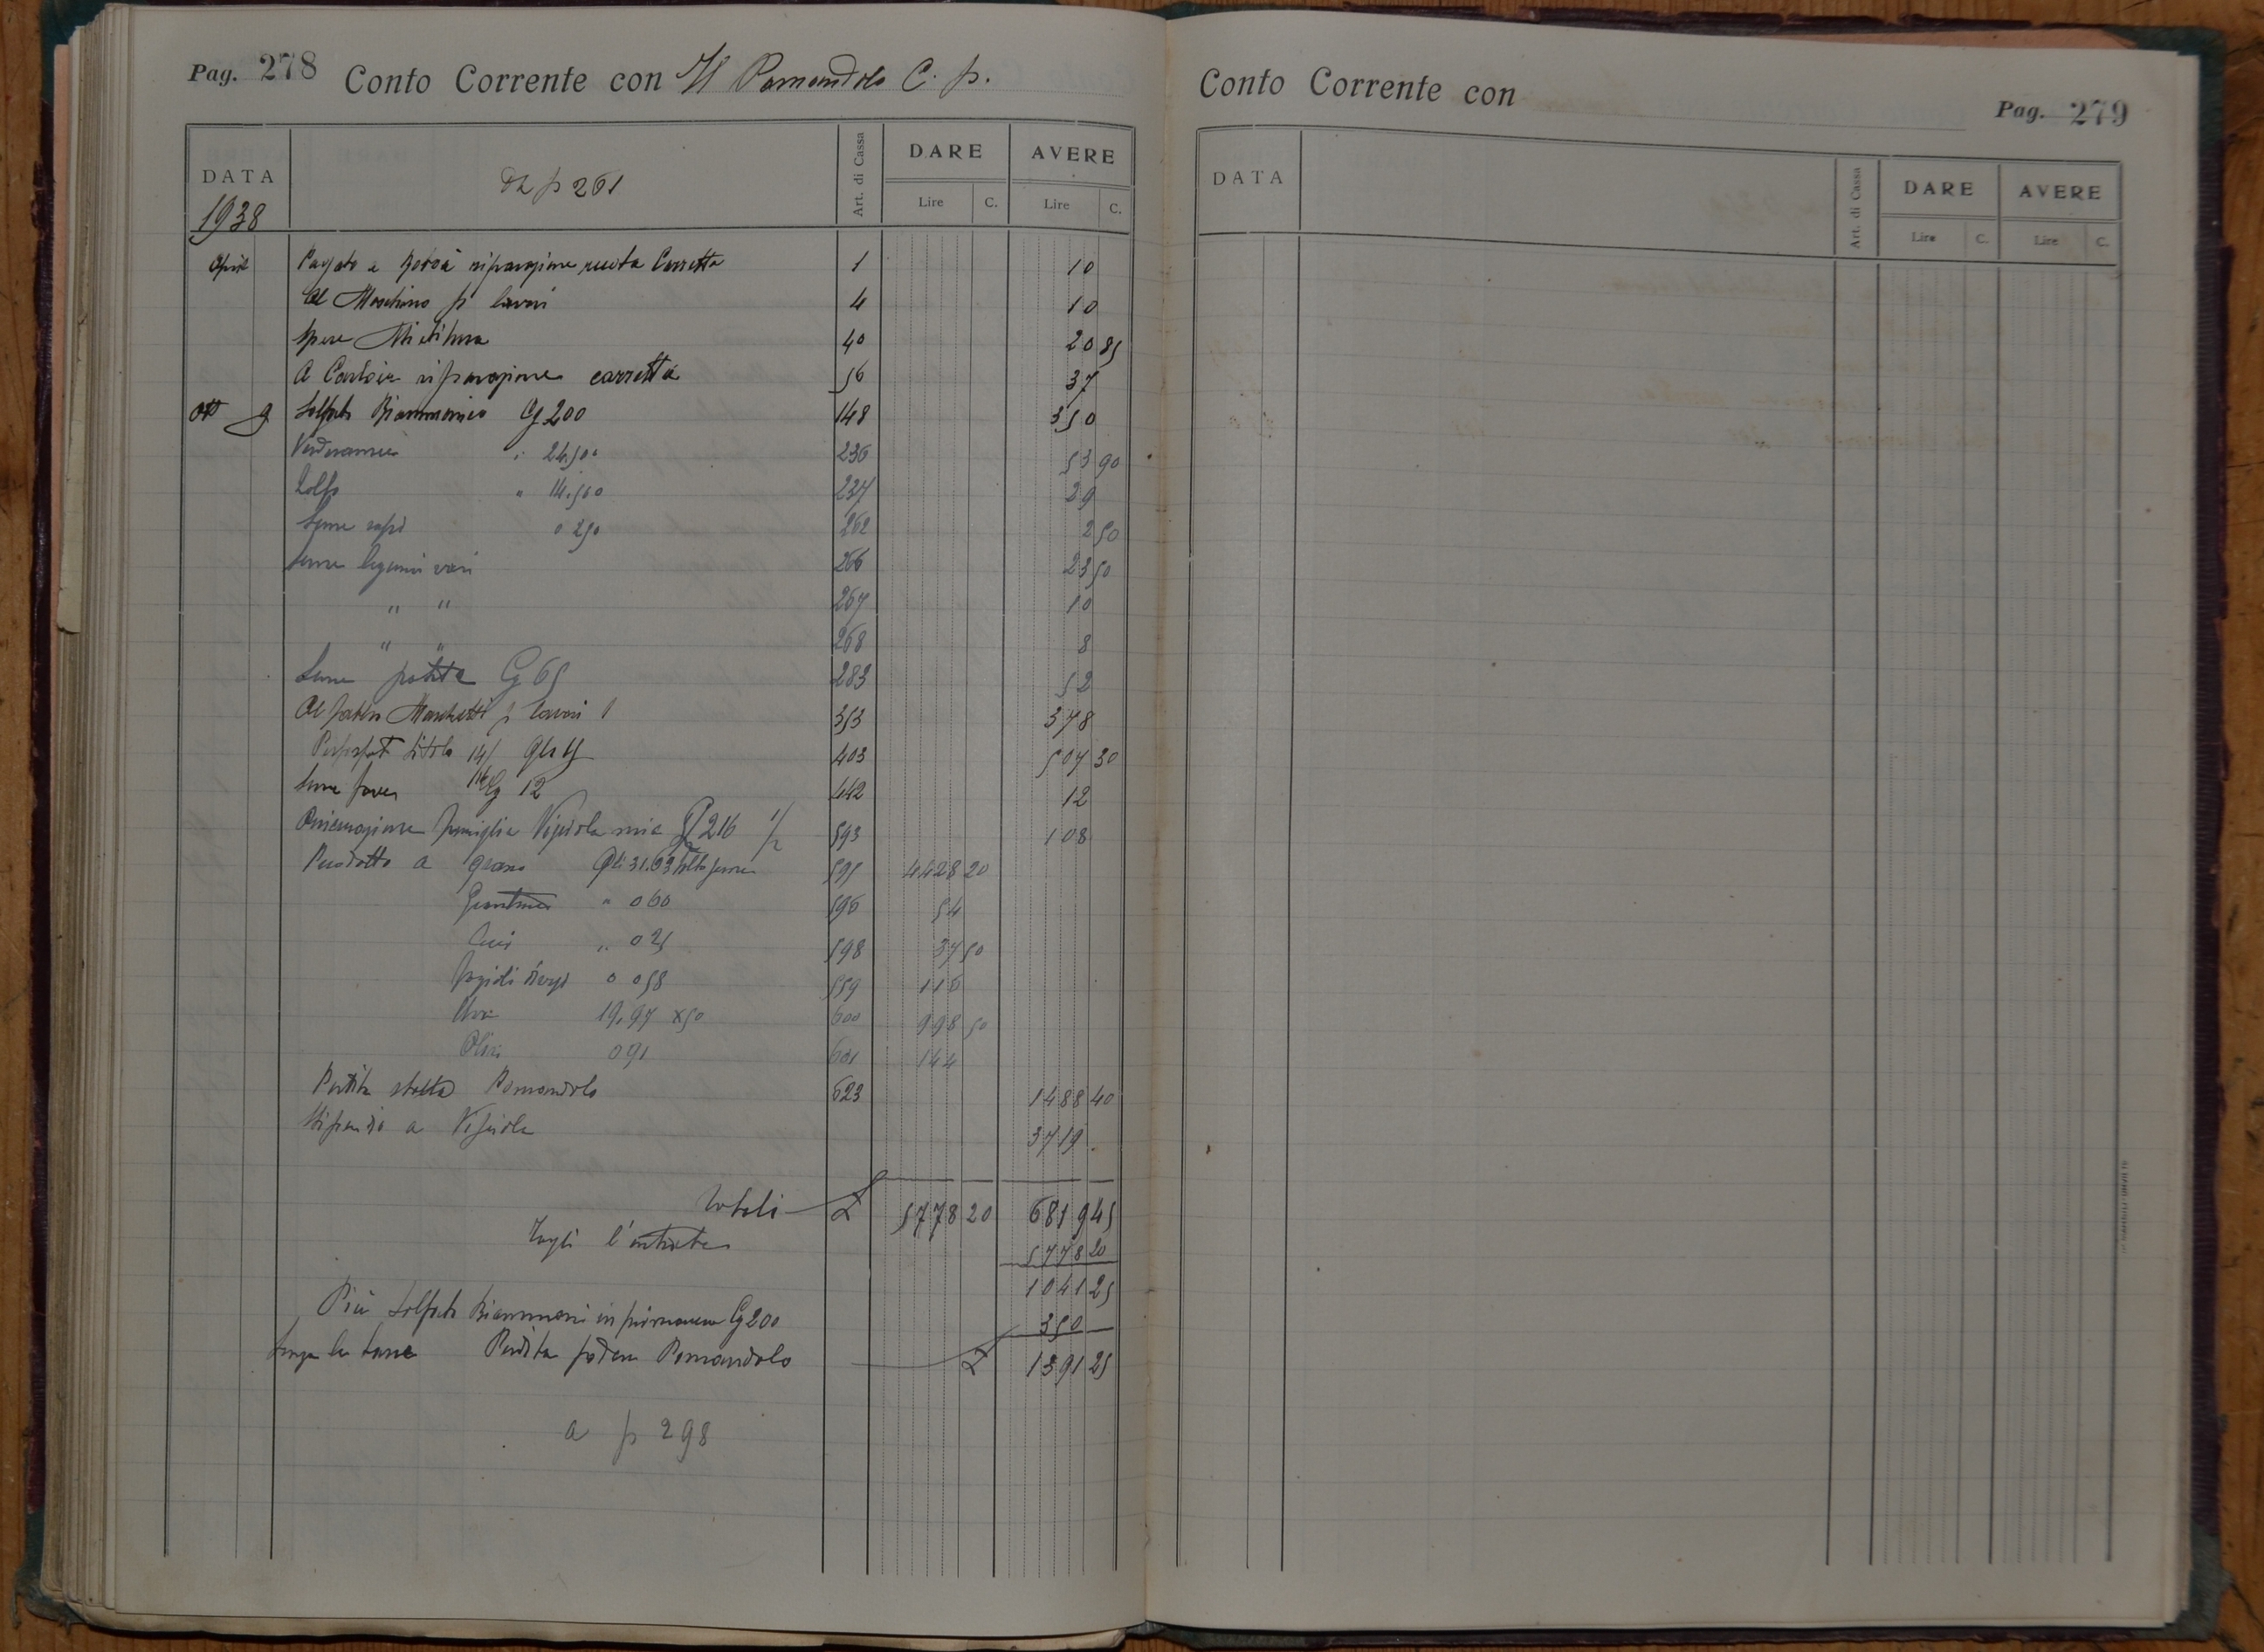 Pag. 278 Conto Corrente con Il Pomandolo C. p.
DATA Art. di Cassa DARE AVERE
Lire C. Lire C.
1938 Da p 261
April Pagato a riparazione ruota Carretta 1 10
Al Moschino p lavori 4 10
Spese Mietitura 40 20 85
A riparazione carretta 56 37
ott 9 Solfato Biammonico Cg 200 148 350
Verderame " 24.500 236 53 90
Zolfo " 14.500 237 29
Seme 0 250 262 2 50
Seme legumi vari 266 23 50
" " 267 10
" " 268 8
Seme patate Cg 65 283 52
Al fabbro Marchetti p lavori 353 378
Perfosfat titolo 14/16 Qli 403 507 30
Seme faver Cg 12 442 12
famiglia Vignola mia 216 1/2 593 108
Prodotto a grano Qli 31.63 tolto seme 595 4428 20
" 060 596 54
Ceci " 025 598 37 50
fagioli diversi 0 058 599 116
Uva 19.97 x50 600 998 50
Olive 091 601 144
Partita stalla Pomandolo 623 1488 40
Stipendio a Vignola 3719
Totali £ 5778 20 6819 45
Togli l'entrata 5778 20
1041 25
Più Solfato Biammoni in Cg 200 350
Senza le tasse Perdita podere Pomandolo £ 1391 25
a p 298
Conto Corrente con Pag. 279
DATA Art. di Cassa DARE AVERE
Lire C. Lire C.